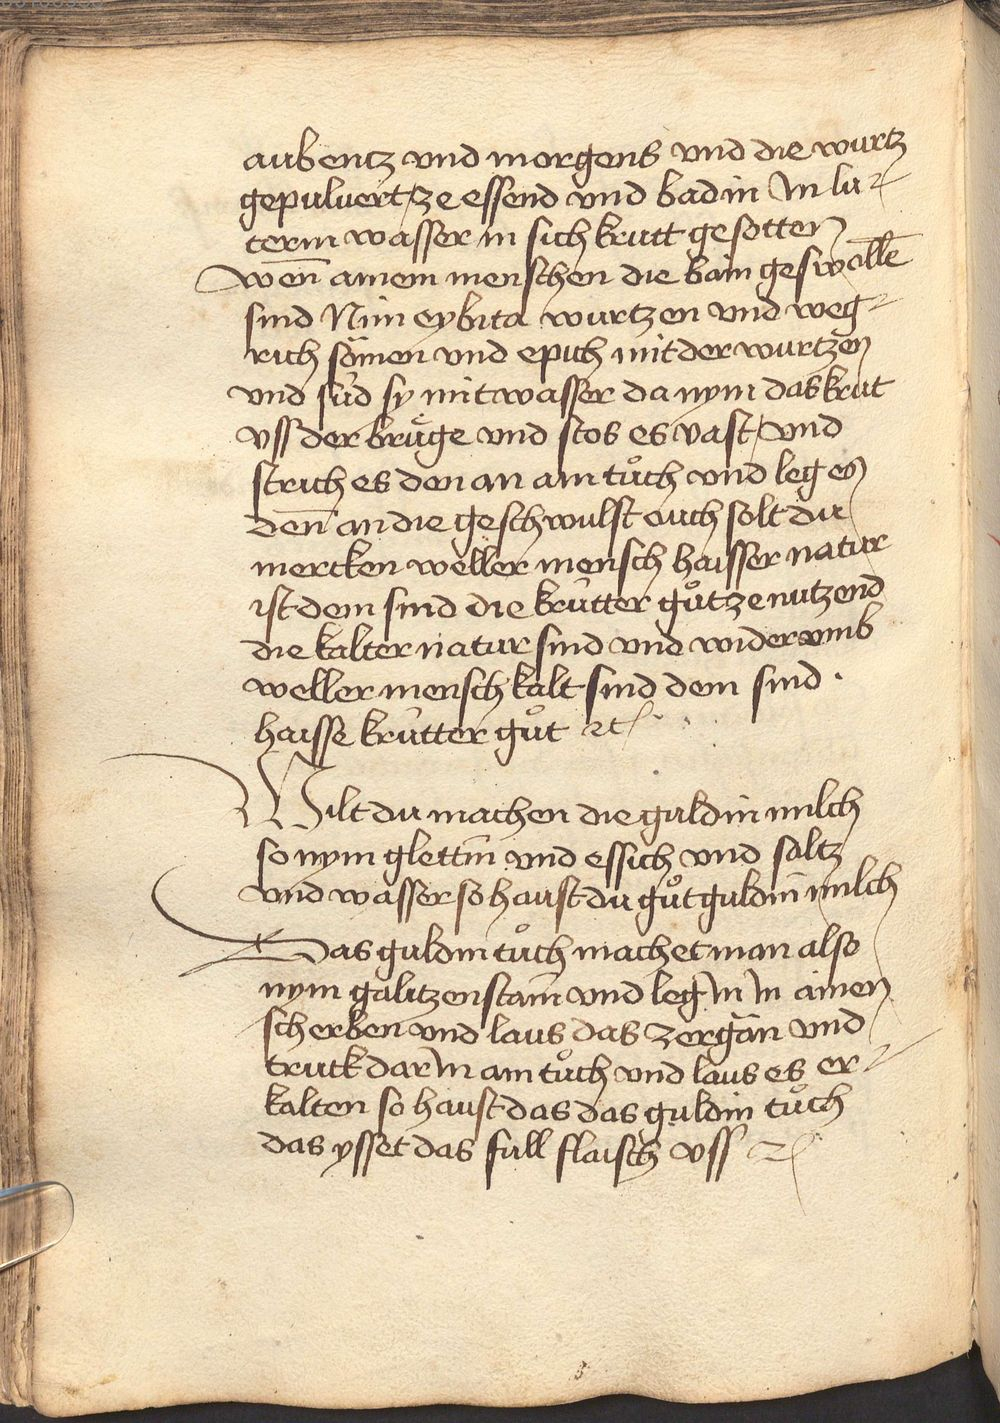 aubentz vnd morgens vnd die wurtz
gepuluert ze essend vnd bad in In lu-
term wasser in sich krutt gesotten
wen̄ ainem menschen die bain geswolle̅
sind Nim eybita wurtzen vnd weg-
rich sämen vnd epich mit der wurtzen
vnd süd sy mit wasser da nym das krut
vss der brüge vnd stos es vast vnd
strich es den an ain tůch vnd leg es
den̄ an die geschwulst ouch solt du
mercken weller mensch haisser natur
ist dem sind die krütter gůt ze nutzend
die kalter natur sind vnd widervmb
weller mensch kalt sind dem sind .
haisse krütter gůt ꝛc
Wilt du machen die guldin milch
so nym glettin vnd essich vnd saltz
vnd wasser so haust du gůt guldin milch
Das guldin tůch machet man also
nym galitzenstain vnd leg In In ainen
scherben vnd laus das zergän vnd
truck dar In ain tůch vnd laus es er-
kalten so haust das das guldin tůch
das ysset das full flaisch vss ꝛc